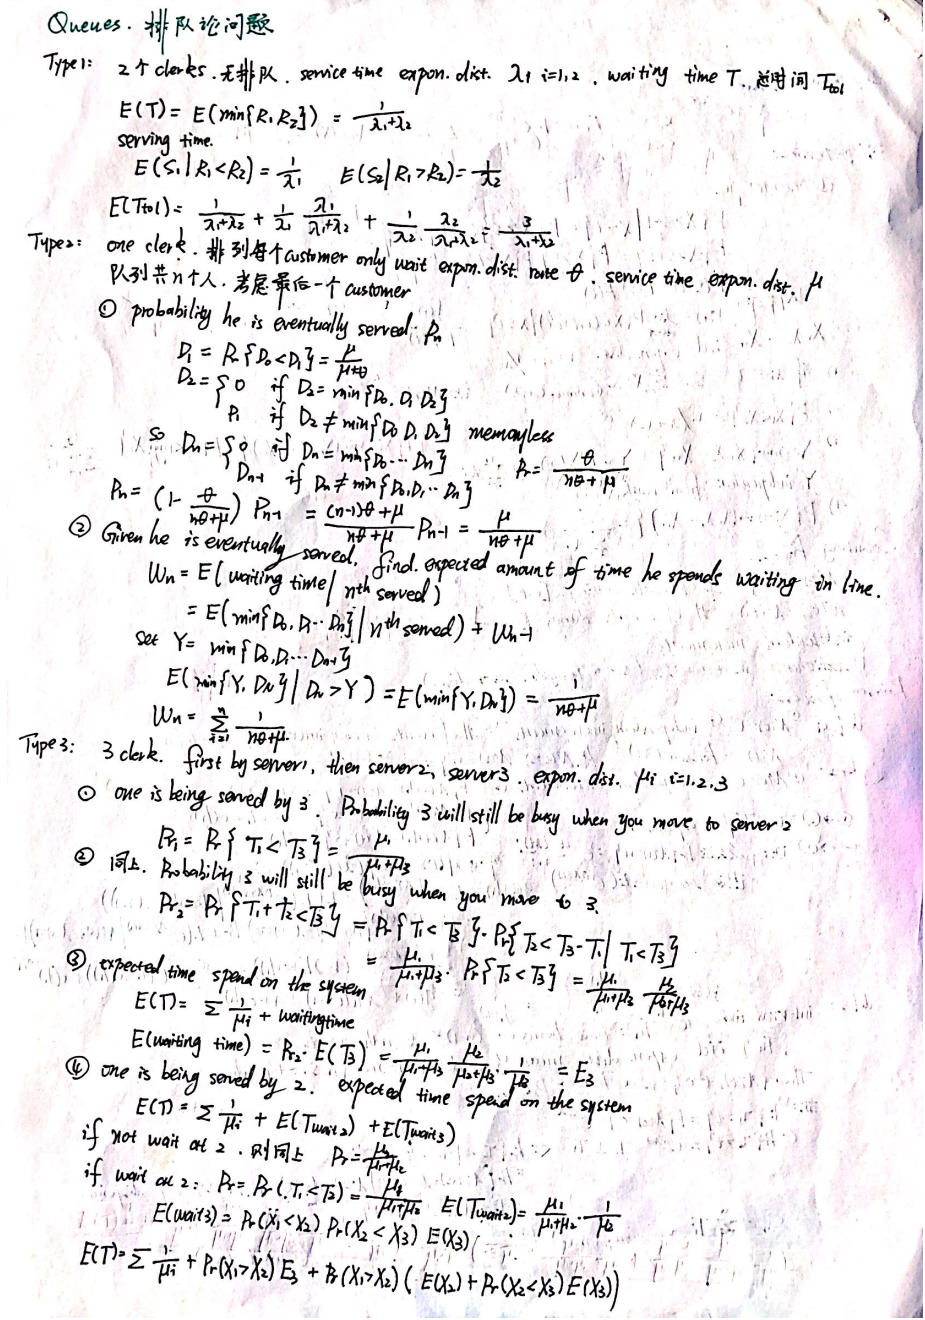 Queues. 排队论问题
Type1: 2个clerks. 无排队. service time expon. dist. λi i=1,2. waiting time T. 总时间 Ttol
E(T) = E(min{R1 R2}) = 1/(λ1+λ2)
serving time.
E(S1|R1<R2) = 1/λ1 E(S2|R1>R2) = 1/λ2
E(Ttol) = 1/(λ1+λ2) + 1/λ1 λ1/(λ1+λ2) + 1/λ2 λ2/(λ1+λ2) = 3/(λ1+λ2)
Type2: one clerk. 排列每个customer only wait expon. dist. rate θ. service time expon. dist. μ
队列共n个人. 考虑最后一个customer
① probability he is eventually served. Pn
P1 = Pr{D0<D1} = μ/(μ+θ)
P2 = { 0 if D2 = min{D0. D1 D2}
P1 if D2 ≠ min{D0 D1 D2} memoryless
so Pn = { 0 if Dn = min{D0 ... Dn}
Pn-1 if Dn ≠ min{D0,D1,... Dn} Pr = θ/(nθ+μ)
Pn = (1 - θ/(nθ+μ)) Pn-1 = ((n-1)θ+μ)/(nθ+μ) Pn-1 = μ/(nθ+μ)
② Given he is eventually served. find. expected amount of time he spends waiting in line.
Wn = E(waiting time | nth served)
= E(min{D0, D1 ... Dn} | nth served) + Wn-1
set Y = min{D0, D1 ... Dn-1}
E(min{Y, Dn} | Dn>Y) = E(min{Y, Dn}) = 1/(nθ+μ)
Wn = Σ_{i=1}^{n} 1/(nθ+μ).
Type3: 3 clerk. first by server1, then server2, server3. expon. dist. μi i=1.2.3
① one is being served by 3. Probability 3 will still be busy when you move to server 2
Pr1 = Pr{T1<T3} = μ1/(μ1+μ3)
② 同上. Probability 3 will still be busy when you move to 3.
Pr2 = Pr{T1+T2<T3} = Pr{T1<T3}·Pr{T2<T3-T1 | T1<T3}
= μ1/(μ1+μ3)· Pr{T2<T3} = μ1/(μ1+μ3) μ2/(μ2+μ3)
③ expected time spend on the system
E(T) = Σ 1/μi + waiting time
E(waiting time) = Pr2· E(T3) = μ1/(μ1+μ3) μ2/(μ2+μ3)· 1/μ3 = E3
④ one is being served by 2. expected time spend on the system
E(T) = Σ 1/μi + E(Twait2) + E(Twait3)
if not wait at 2. 则同上 Pr = μ2/(μ1+μ2)
if wait at 2: Pr = Pr(T1<T2) = μ1/(μ1+μ2) E(Twait2) = μ1/(μ1+μ2)· 1/μ2
E(wait3) = Pr(X1<X2) Pr(X2<X3) E(X3)
E(T) = Σ 1/μi + Pr(X1>X2) E3 + Pr(X1>X2) (E(X2) + Pr(X2<X3) E(X3))